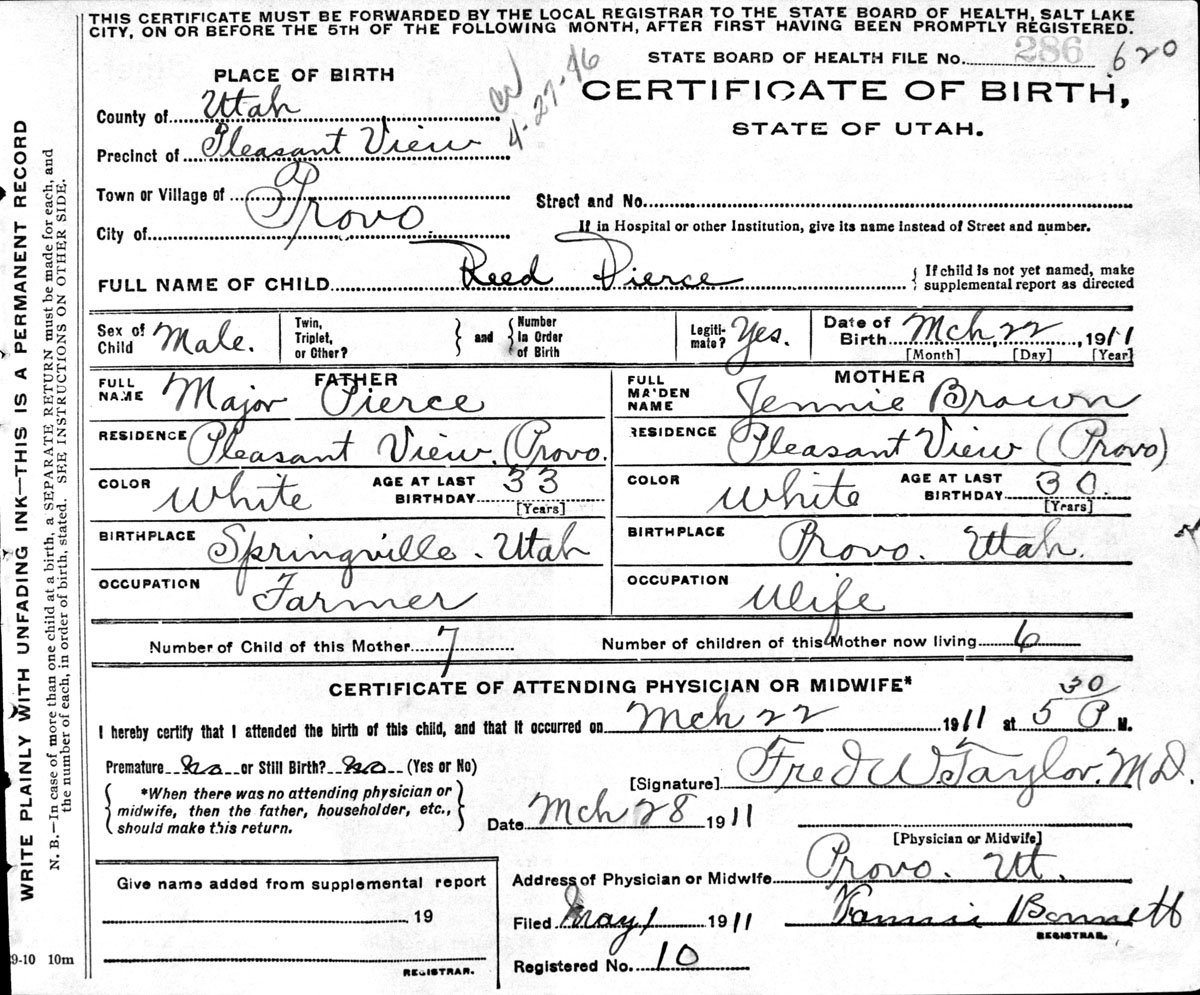 THIS CERTIFICATE MUST BE FORWARDED BY THE LOCAL REGISTRAR TO THE STATE BOARD OF HEALTH, SALT LAKE
CITY, ON OR BEFORE THE 5TH OF THE FOLLOWING MONTH, AFTER FIRST HAVING BEEN PROMPTLY REGISTERED.
STATE BOARD OF HEALTH FILE No. 286 620
4-27-46
PLACE OF BIRTH
CERTIFICATE OF BIRTH,
STATE OF UTAH.
County of Utah
Precinct of Pleasant View
Town or Village of
City of Provo
Street and No.
If in Hospital or other Institution, give its name instead of Street and number.
FULL NAME OF CHILD Reed Pierce { If child is not yet named, make
supplemental report as directed
Sex of Child Male. Twin, Triplet, or Other? } and { Number in Order of Birth Legiti-mate? Yes. Date of Birth Mch, 22, 1911
[Month] [Day] [Year]
FATHER
FULL NAME Major Pierce
RESIDENCE Pleasant View. (Provo.
COLOR White AGE AT LAST BIRTHDAY 33
[Years]
BIRTHPLACE Springville. Utah
OCCUPATION Farmer
MOTHER
FULL MAIDEN NAME Jennie Brown
RESIDENCE Pleasant View (Provo)
COLOR White AGE AT LAST BIRTHDAY 30.
[Years]
BIRTHPLACE Provo. Utah.
OCCUPATION Wife
Number of Child of this Mother 7 Number of children of this Mother now living 6
CERTIFICATE OF ATTENDING PHYSICIAN OR MIDWIFE*
I hereby certify that I attended the birth of this child, and that it occurred on Mch 22 1911 at 5 30 P M.
Premature no or Still Birth? no (Yes or No)
[Signature] Fred W. Taylor. M.D.
{ *When there was no attending physician or
midwife, then the father, householder, etc.,
should make this return. }
Date Mch 28 1911
[Physician or Midwife]
Address of Physician or Midwife Provo. Ut.
Give name added from supplemental report
19
REGISTRAR.
Filed May 1 1911 Bonnett
REGISTRAR.
Registered No. 10
9-10 10m
WRITE PLAINLY WITH UNFADING INK—THIS IS A PERMANENT RECORD
N. B.—In case of more than one child at a birth, a SEPARATE RETURN must be made for each, and
the number of each, in order of birth, stated. SEE INSTRUCTIONS ON OTHER SIDE.